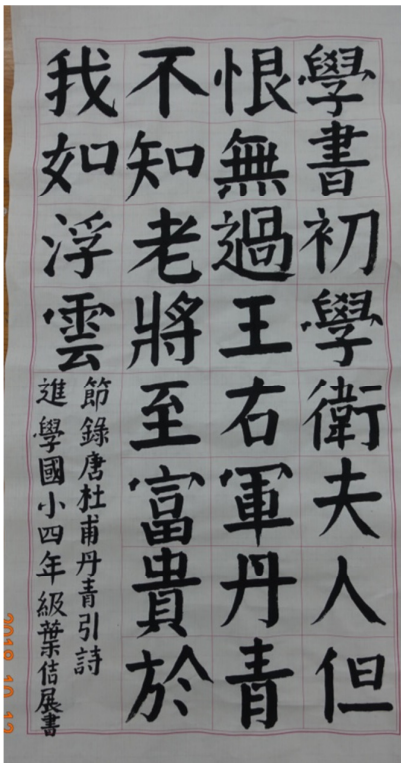 學書初學衛夫人但
恨無過王右軍丹青
不知老將至富貴於
我如浮雲
節錄唐杜甫丹青引詩
進學國小四年級葉佶展書
2018 10 12